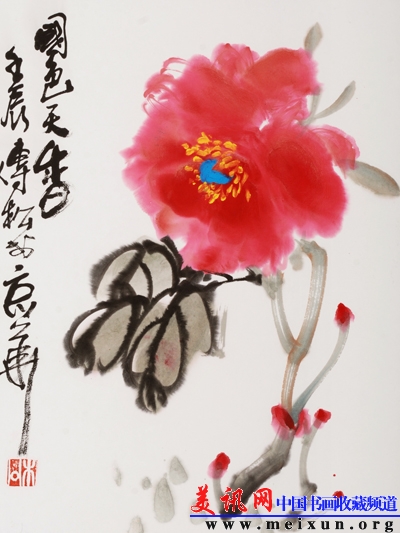 國色天香
壬辰傅松
京華
美讯网 中国书画收藏频道
www.meixun.org